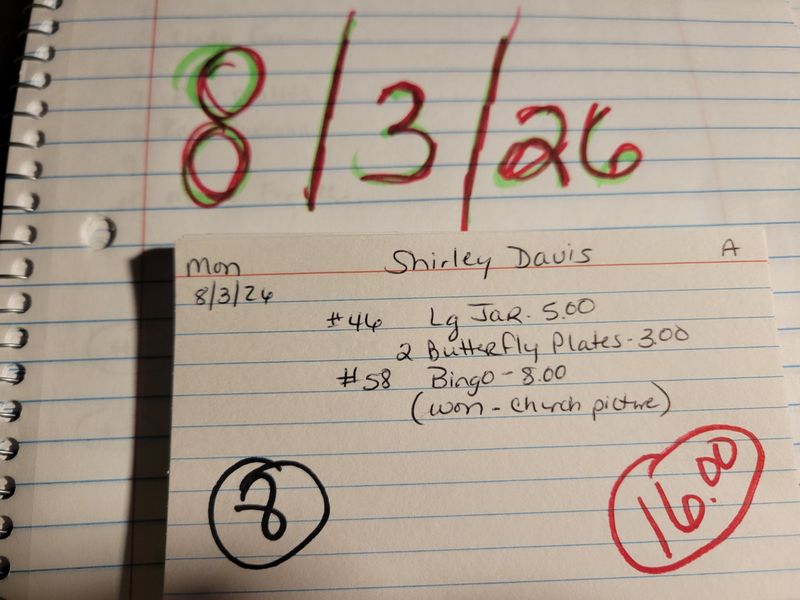 8/3/26
Mon Shirley Davis A
8/3/26
#46 Lg Jar. 5.00
2 Butterfly Plates - 3.00
#58 Bingo - 8.00
(won - church picture)
8 16.00